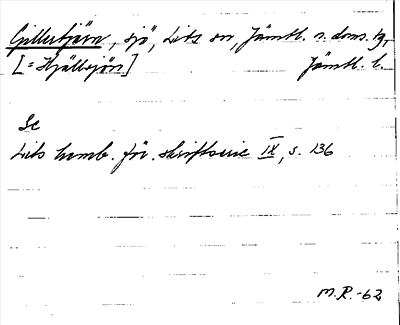 Gillertjärn, sjö, Lits sn, Jämtl. n. doms. tg,
[= Hjällsjön] Jämtl. l.
Se
Lits hemb. för. skriftserie IX, s. 136
M.R.-62